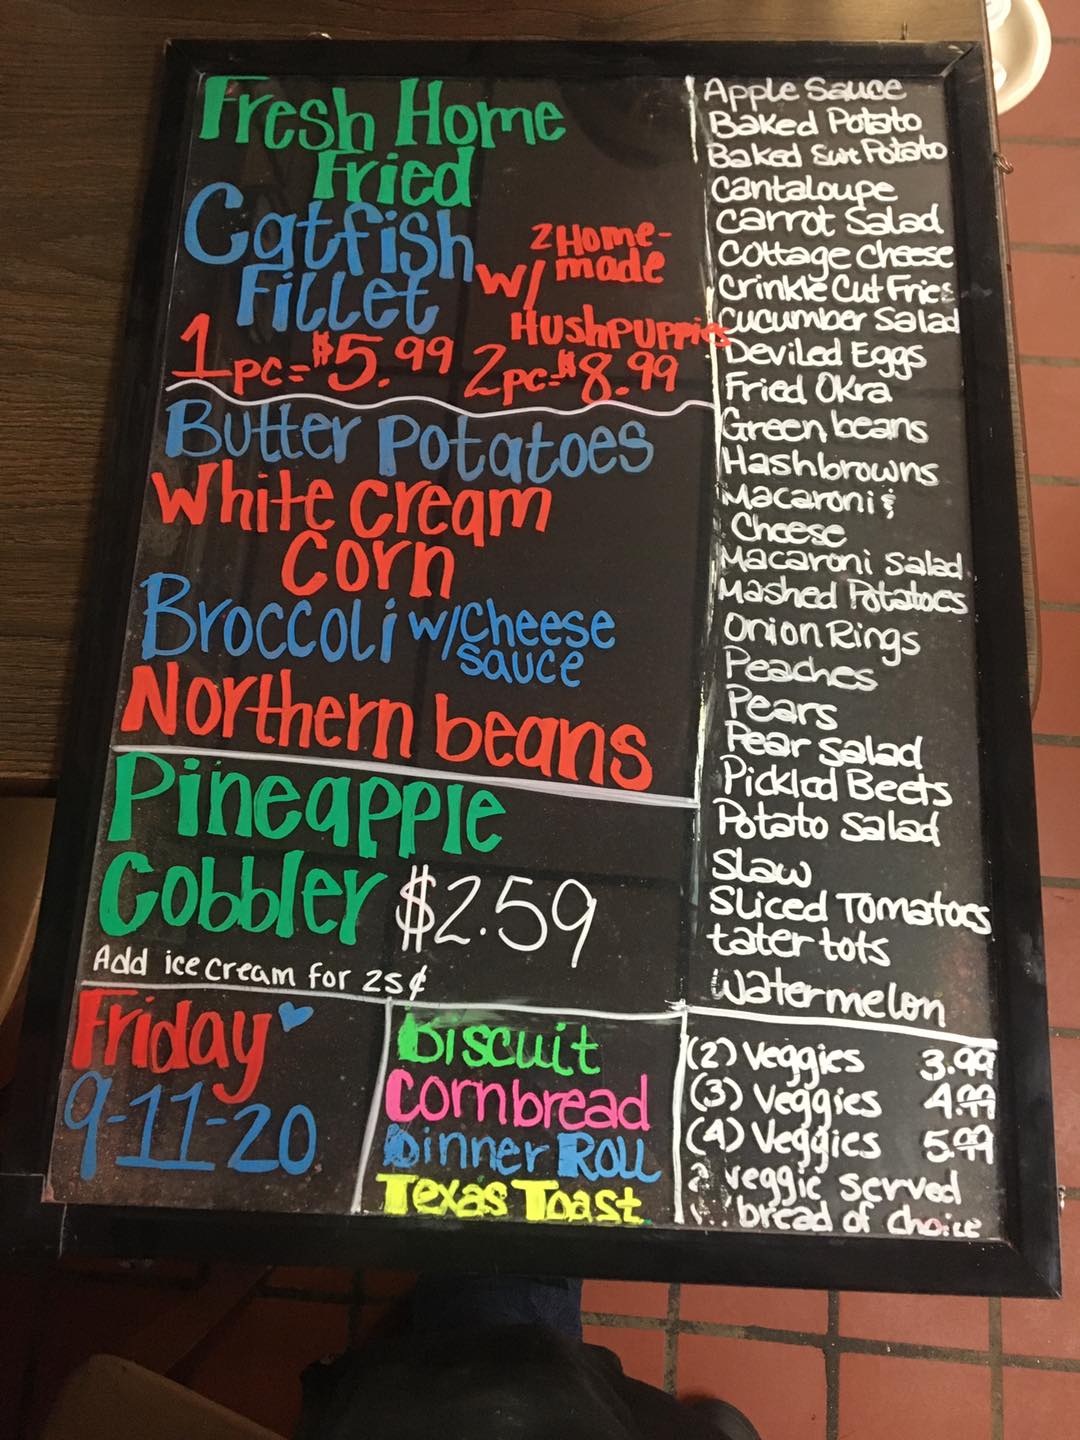 Fresh Home
Fried
Catfish
Fillet
w/
2 Home-
made
Hushpuppies
1pc=$5.99 2pc=$8.99
Butter potatoes
White cream
corn
Broccoli w/cheese
sauce
Northern beans
Pineapple
Cobbler $2.59
Add ice cream for 25¢
Friday
9-11-20
Biscuit
Cornbread
Dinner Roll
Texas Toast
Apple Sauce
Baked Potato
Baked Swt Potato
Cantaloupe
Carrot Salad
Cottage Cheese
Crinkle Cut Fries
Cucumber Salad
Deviled Eggs
Fried Okra
Green beans
Hashbrowns
Macaroni &
Cheese
Macaroni Salad
Mashed Potatoes
Onion Rings
Peaches
Pears
Pear Salad
Pickled Beets
Potato Salad
Slaw
Sliced Tomatoes
tater tots
Watermelon
(2) Veggies 3.99
(3) Veggies 4.99
(4) Veggies 5.99
veggie served
bread of choice